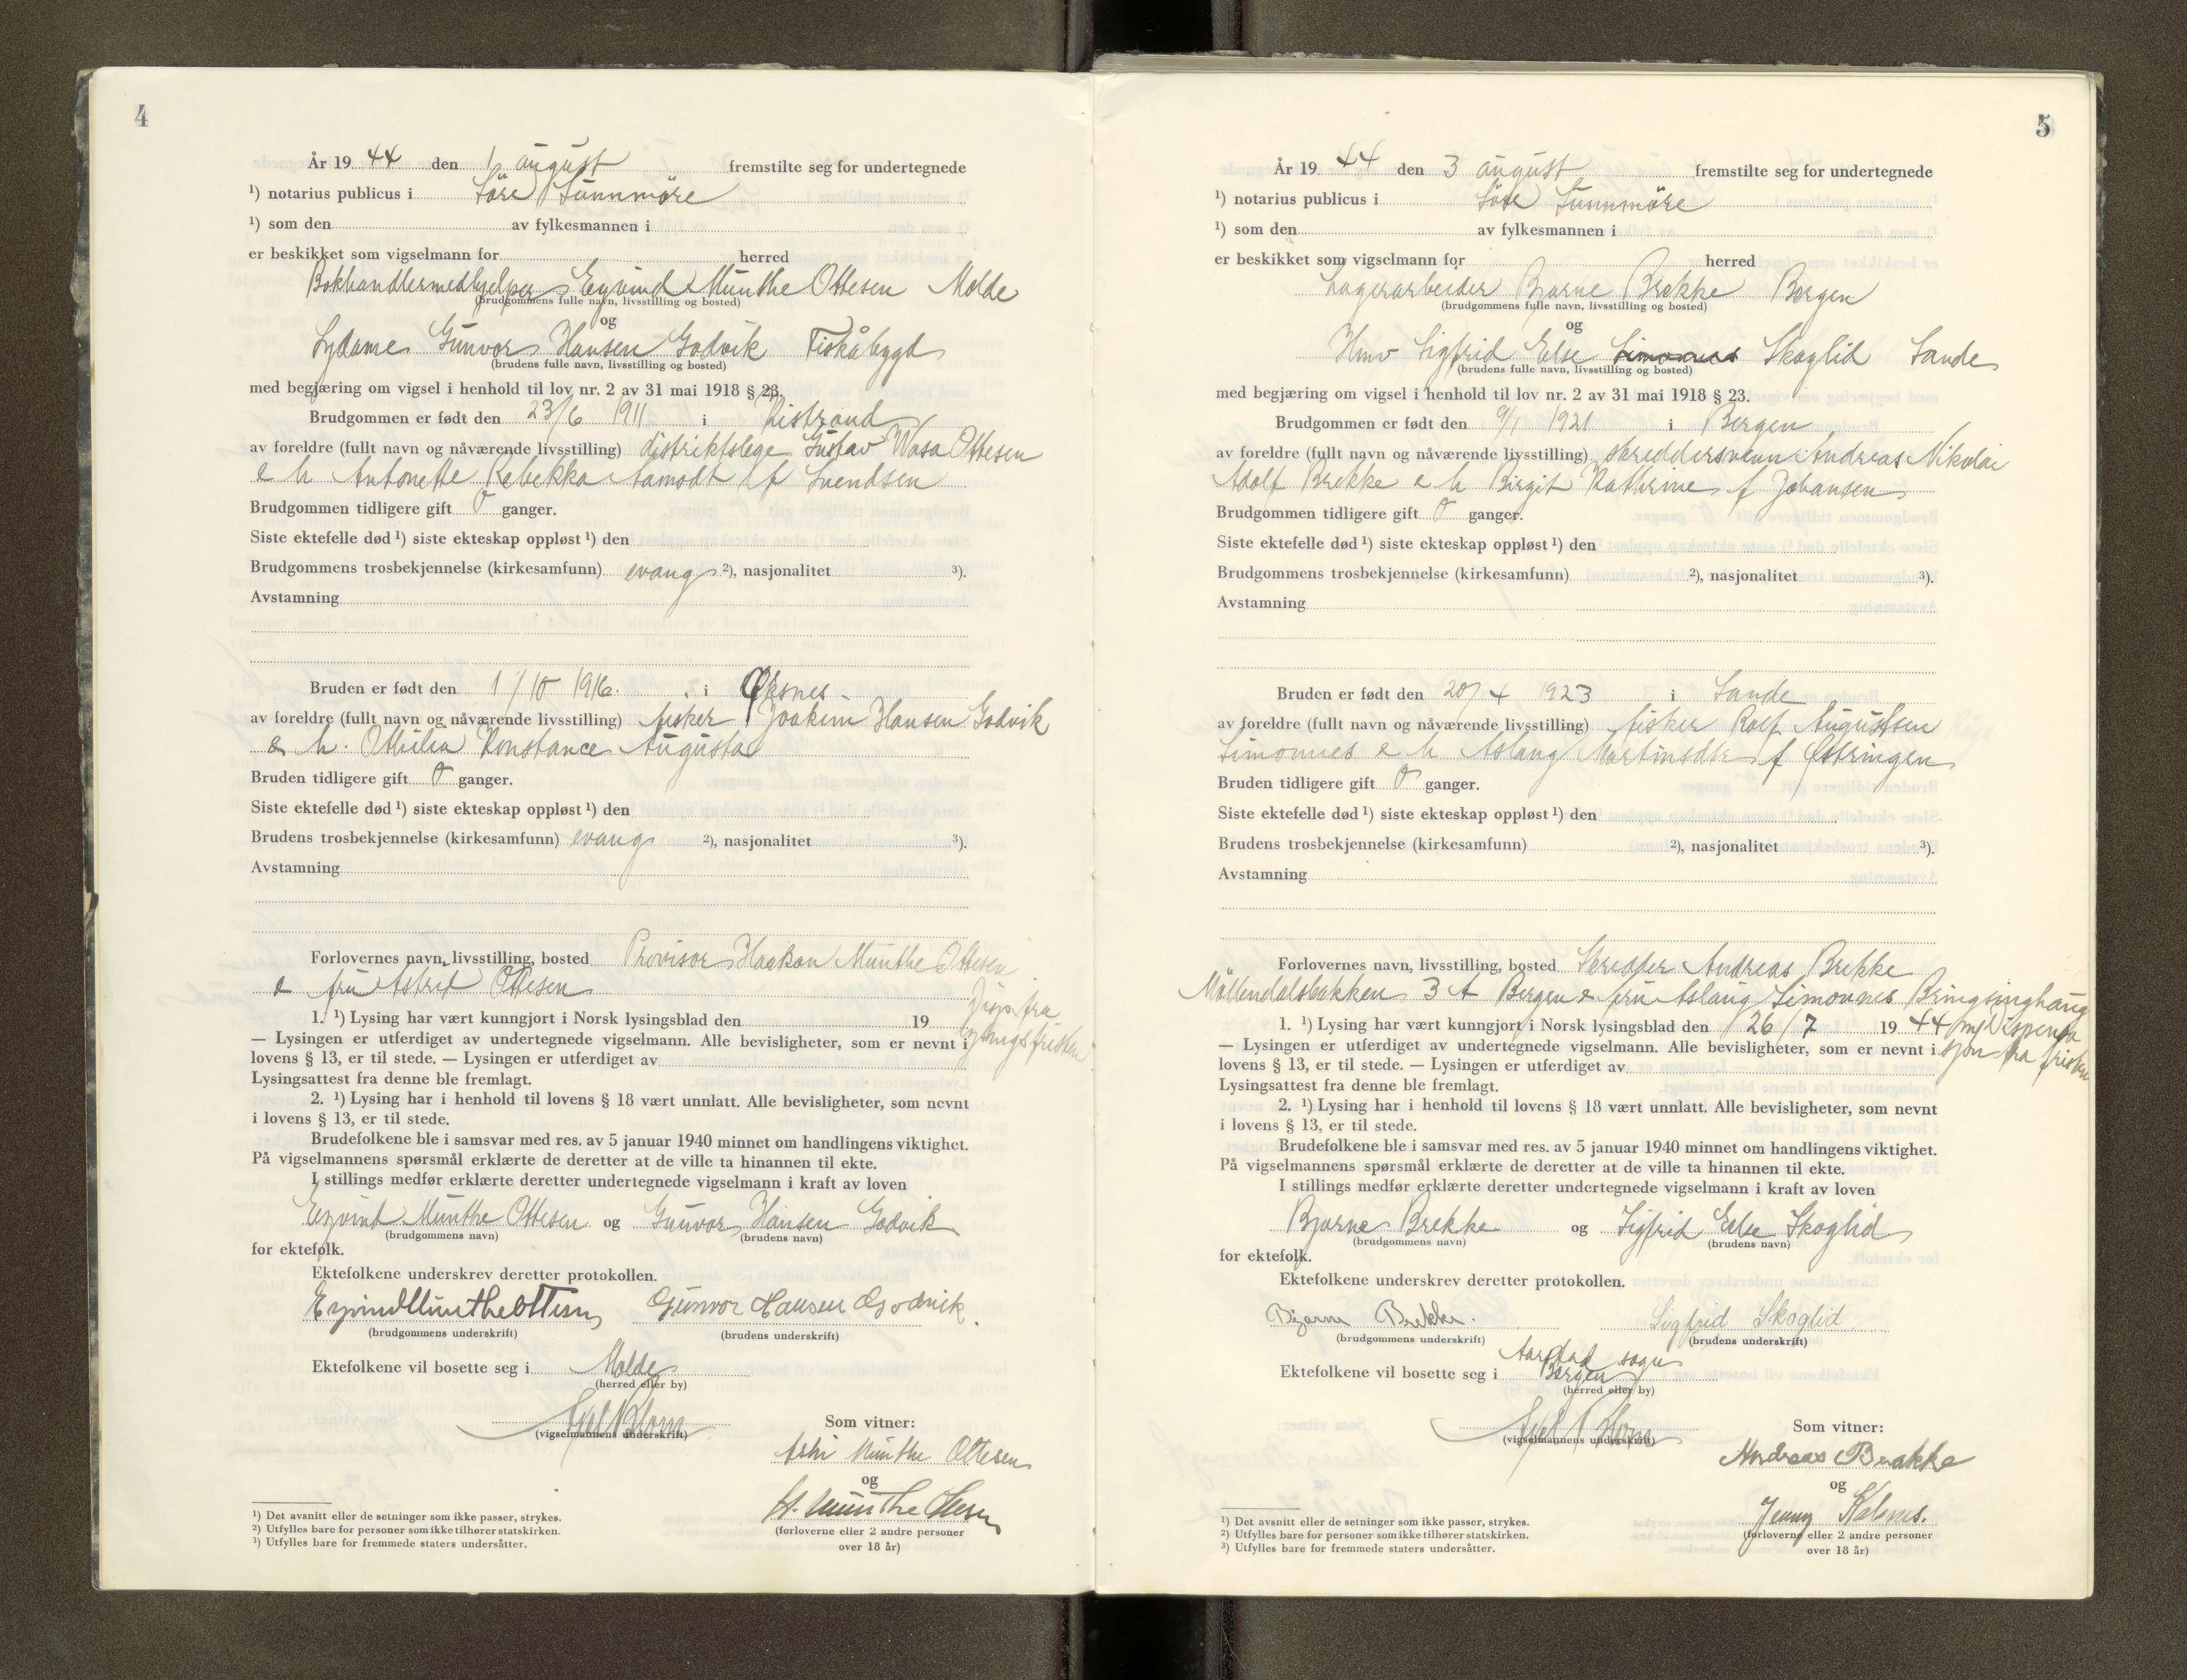 4
År 19 44 den 1 august fremstilte seg for undertegnede
¹) notarius publicus i Söre Sunnmöre
¹) som den av fylkesmannen i
er beskikket som vigselmann for herred
Bokhandlermedhjelper Eyvind Munthe Ottesen Molde
(brudgommens fulle navn, livsstilling og bosted)
og
Sydame Gunvor Hansen Godvik Fiskåbygd
(brudens fulle navn, livsstilling og bosted)
med begjæring om vigsel i henhold til lov nr. 2 av 31 mai 1918 § 23.
Brudgommen er født den 23/6 1911 i Kistrand
av foreldre (fullt navn og nåværende livsstilling) distriktslege Gustav Wasa Ottesen
e h Antonette Rebekka Aamodt f Svendsen
Brudgommen tidligere gift 0 ganger.
Siste ektefelle død ¹) siste ekteskap oppløst ¹) den
Brudgommens trosbekjennelse (kirkesamfunn) evang ²), nasjonalitet ³).
Avstamning
Bruden er født den 1/10 1916. i Øksnes
av foreldre (fullt navn og nåværende livsstilling) fisker Joakim Hansen Godvik
e h. Othilia Konstance Augusta
Bruden tidligere gift 0 ganger.
Siste ektefelle død ¹) siste ekteskap oppløst ¹) den
Brudens trosbekjennelse (kirkesamfunn) evang ²), nasjonalitet ³).
Avstamning
Forlovernes navn, livsstilling, bosted Provisor Haakon Munthe Ottesen
e fru Astrid Ottesen
1. ¹) Lysing har vært kunngjort i Norsk lysingsblad den 19 Disp. fra
— Lysingen er utferdiget av undertegnede vigselmann. Alle bevisligheter, som er nevnt i lysingsfristen
lovens § 13, er til stede. — Lysingen er utferdiget av
Lysingsattest fra denne ble fremlagt.
2. ¹) Lysing har i henhold til lovens § 18 vært unnlatt. Alle bevisligheter, som nevnt
i lovens § 13, er til stede.
Brudefolkene ble i samsvar med res. av 5 januar 1940 minnet om handlingens viktighet.
På vigselmannens spørsmål erklærte de deretter at de ville ta hinannen til ekte.
I stillings medfør erklærte deretter undertegnede vigselmann i kraft av loven
Eyvind Munthe Ottesen og Gunvor Hansen Godvik
(brudgommens navn) (brudens navn)
for ektefolk.
Ektefolkene underskrev deretter protokollen.
Eyvind Munthe Ottesen Gunvor Hansen Godvik.
(brudgommens underskrift) (brudens underskrift)
Ektefolkene vil bosette seg i Molde
(herred eller by)
(vigselmannens underskrift)
Som vitner:
Astri Munthe Ottesen
og
H. Munthe Ottesen
(forloverne eller 2 andre personer
over 18 år)
¹) Det avsnitt eller de setninger som ikke passer, strykes.
²) Utfylles bare for personer som ikke tilhører statskirken.
³) Utfylles bare for fremmede staters undersåtter.
5
År 19 44 den 3 august fremstilte seg for undertegnede
¹) notarius publicus i Söre Sunnmöre
¹) som den av fylkesmannen i
er beskikket som vigselmann for herred
Lagerarbeider Bjarne Brekke Bergen
(brudgommens fulle navn, livsstilling og bosted)
og
Hmv Sigfrid Else Simonnes Skoglid Sande
(brudens fulle navn, livsstilling og bosted)
med begjæring om vigsel i henhold til lov nr. 2 av 31 mai 1918 § 23.
Brudgommen er født den 9/1 1921 i Bergen
av foreldre (fullt navn og nåværende livsstilling) skreddersvenn Andreas Nikolai
Adolf Brekke e h Birgit Kathrine f Johansen
Brudgommen tidligere gift 0 ganger.
Siste ektefelle død ¹) siste ekteskap oppløst ¹) den
Brudgommens trosbekjennelse (kirkesamfunn) ²), nasjonalitet ³).
Avstamning
Bruden er født den 20/4 1923 i Sande
av foreldre (fullt navn og nåværende livsstilling) fisker Rolf Augustsen
Simonnes e h Aslaug Martinsdtr f Østringen
Bruden tidligere gift 0 ganger.
Siste ektefelle død ¹) siste ekteskap oppløst ¹) den
Brudens trosbekjennelse (kirkesamfunn) ²), nasjonalitet ³).
Avstamning
Forlovernes navn, livsstilling, bosted Skredder Andreas Brekke
Möllendalsbakken 3 A Bergen e fru Aslaug Simonnes Bringsinghaug
1. ¹) Lysing har vært kunngjort i Norsk lysingsblad den 26/7 19 44 m/dispensa
— Lysingen er utferdiget av undertegnede vigselmann. Alle bevisligheter, som er nevnt i sjon fra fristen
lovens § 13, er til stede. — Lysingen er utferdiget av
Lysingsattest fra denne ble fremlagt.
2. ¹) Lysing har i henhold til lovens § 18 vært unnlatt. Alle bevisligheter, som nevnt
i lovens § 13, er til stede.
Brudefolkene ble i samsvar med res. av 5 januar 1940 minnet om handlingens viktighet.
På vigselmannens spørsmål erklærte de deretter at de ville ta hinannen til ekte.
I stillings medfør erklærte deretter undertegnede vigselmann i kraft av loven
Bjarne Brekke og Sigfrid Else Skoglid
(brudgommens navn) (brudens navn)
for ektefolk.
Ektefolkene underskrev deretter protokollen.
Bjarne Brekke. Sigfrid Skoglid
(brudgommens underskrift) (brudens underskrift)
Aarstad sogn
Ektefolkene vil bosette seg i Bergen
(herred eller by)
(vigselmannens underskrift)
Som vitner:
Andreas Brekke
og
Jenny
(forloverne eller 2 andre personer
over 18 år)
¹) Det avsnitt eller de setninger som ikke passer, strykes.
²) Utfylles bare for personer som ikke tilhører statskirken.
³) Utfylles bare for fremmede staters undersåtter.